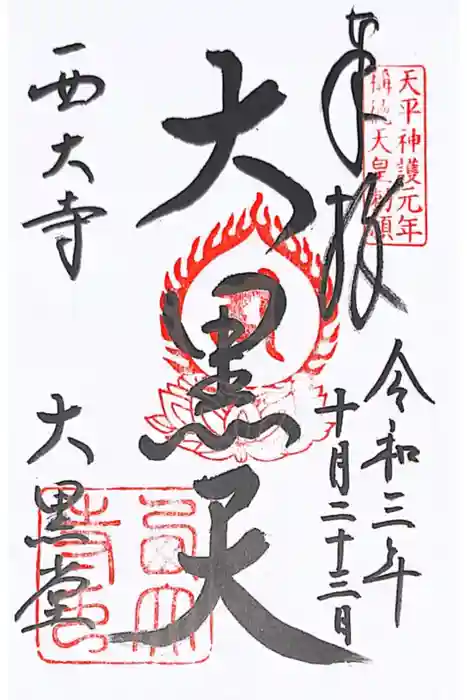 天平神護元年
稱徳天皇勅願
奉拝
令和三年
十月二十三日
大黒天
西大寺
大黒堂